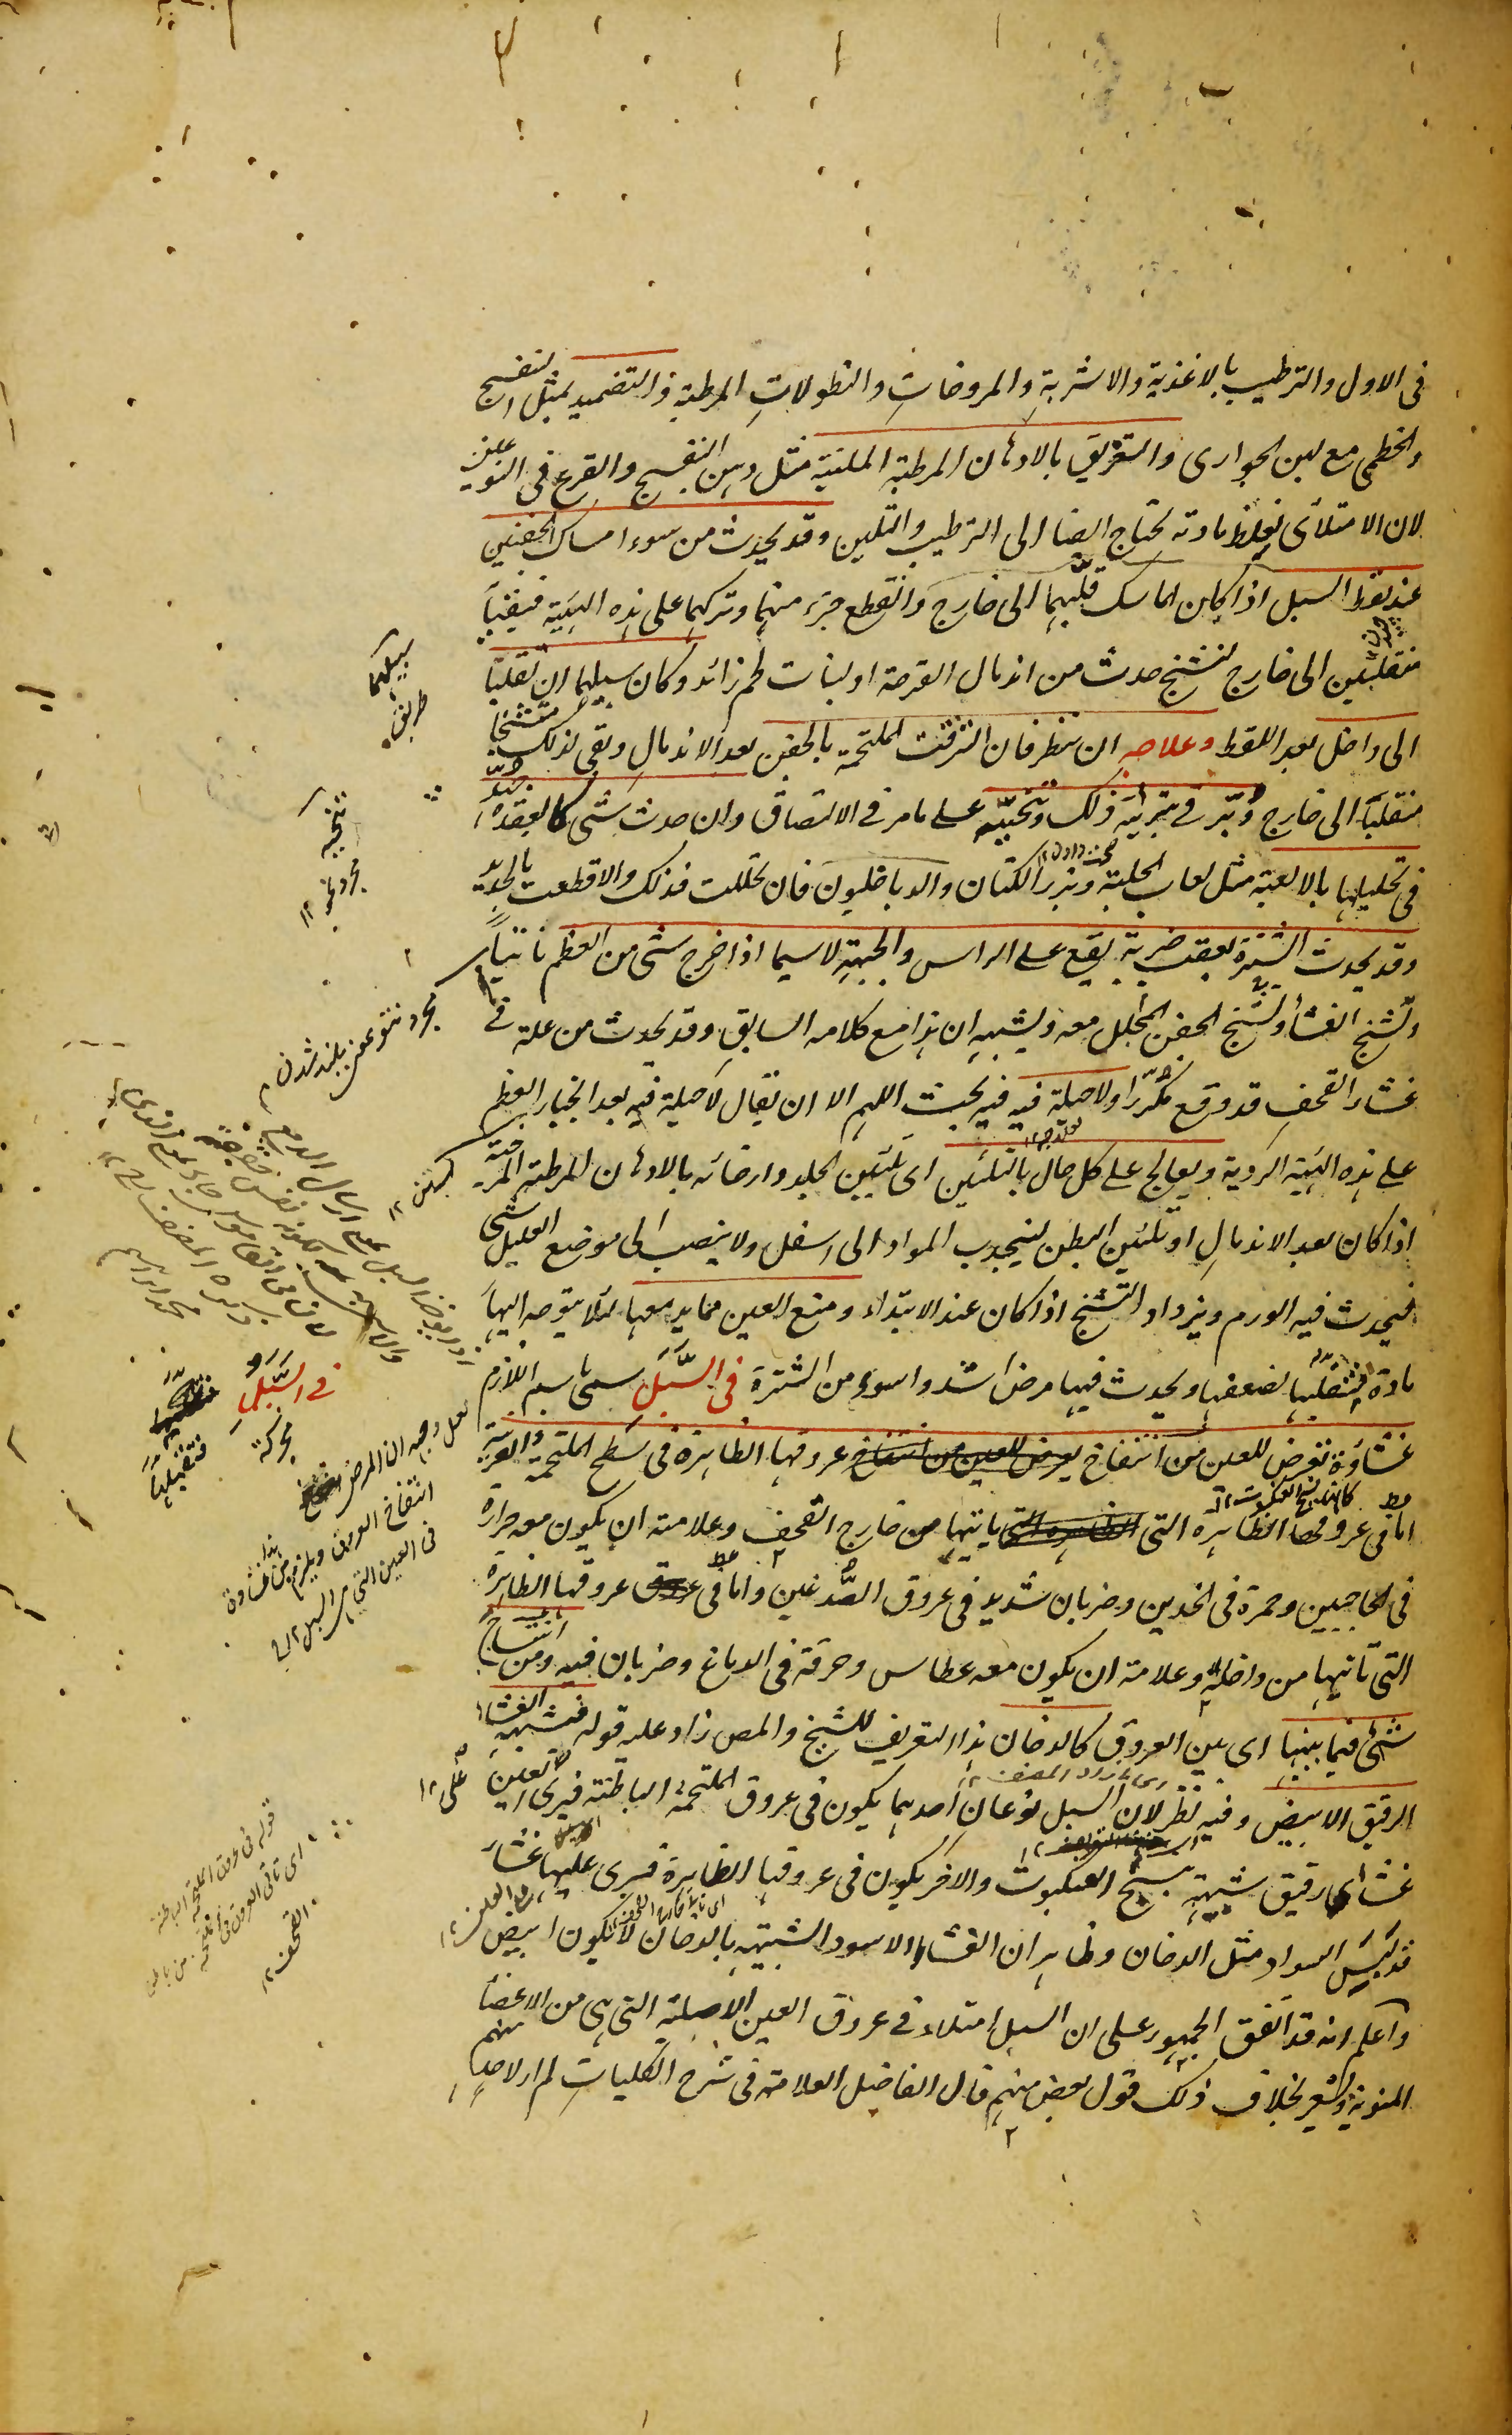 فى الاول والترطيب بالاغذية والاشربة والمروخات والنطولات المرطبة والتضميد بمثل البنفسج
والخطمى مع لبن الجوارى والتغريق بالادهان المرطبة الملينة مثل دهن البنفسج والقرع فى النوعين
لان الامتلائى لغلظ مادته يحتاج ايضا الى الترطيب والتليين وقد يحدث من سوء امساك الجفنين
عند لقط السبل اذا كان الماسك قلبهما الى خارج وانقطع جزء منهما وتركهما على هذه الهيئة فبقيا
منقلبين الى خارج لتشنج حدث من اندمال القرحة او لنبات لحم زائد وكان سبيلهما ان تقلبا
الى داخل بعد اللقط وعلاجه ان تنظر فان التزقت الملتحمة بالجفن بعد الاندمال وبقى لذلك متشنجا
منقلبا الى خارج دبر فى تبرئته ذلك وتنحيته على ما مر فى الالتصاق وان حدث شئ كالعقدة
فى تحليلها بالالعبة مثل لعاب الحلبة وبزر الكتان والدياخليون فان تحللت فذلك والا قطعت بالحديد
وقد يحدث الشترة بعقب ضربة يقع على الراس والجبهة لا سيما اذا خرج شئ من العظم ناتيا
وتشنج الغشاء وتشنج الجفن المجلل معه ويشبه ان هذا مع كلامه السابق وقد يحدث من علة فى
غشاء القحف قد وقع مكررا ولا حيلة فيه فيه بحث اللهم الا ان يقال لا حيلة فيه بعد انجبار العظم
على هذه الهيئة الردية ويعالج على كل حال بالتليين اى تليين الجلد وارخائه بالادهان المرطبة المرخية
اذا كان بعد الاندمال او تليين البطن لينجذب المواد الى اسفل ولا ينصب الى موضع العليل شئ
فيحدث فيه الورم ويزداد التشنج اذا كان عند الابتداء ومنع العين مما يدمعها لئلا يتوجه اليها
مادة فتقبلها لضعفها ويحدث فيها مرض اشد واسوء من الشترة فى السبل سمى باسم اللازم
غشاوة تعرض للعين من انتفاخ عروقها الظاهرة فى سطح الملتحمة والقرنية
اما فى عروقها الظاهرة التى تاتيها من خارج القحف وعلامته ان يكون معه حرارة
فى الحاجبين وحمرة فى الخدين وضربان شديد فى عروق الصدغين واما فى عروقها الظاهرة
التى تاتيها من داخله وعلامته ان يكون معه عطاس وحرقة فى الدماغ وضربان فيه ومن انتساج
شئ فيما بينها اى بين العروق كالدخان هذا التعريف للشيخ والمص زاد عليه قوله فيشبه الغشاء
الرقيق الابيض وفيه نظر لان السبل نوعان احدهما يكون فى عروق الملتحمة الباطنة فيرى العين
غشاء رقيق شبيه بنسج العنكبوت والاخر يكون فى عروقها الظاهرة فيرى عليها غشاء
قد لبس السواد مثل الدخان وظاهر ان الغشاء الاسود الشبيه بالدخان لا يكون ابيض
واعلم انه قد اتفق الجمهور على ان السبل امتلاء فى عروق العين الاصلية التى هى من الاعضاء
المنوية ويشعر بخلاف ذلك قول بعض منهم قال الفاضل العلامة فى شرح الكليات لم ار لاحد منهم
سبيلهما
طريق
مجرد نتو بمعنى بلند شدن
فى السبل
محركة
لعل وجهه ان المرض
انتفاخ العروق ويلزم من هذا غشاوة
فى العين التى هى السبل
قوله فى عروق الملتحمة الباطنة
اى تاتى العروق فى الملتحمة من باطن
القحف ١٢